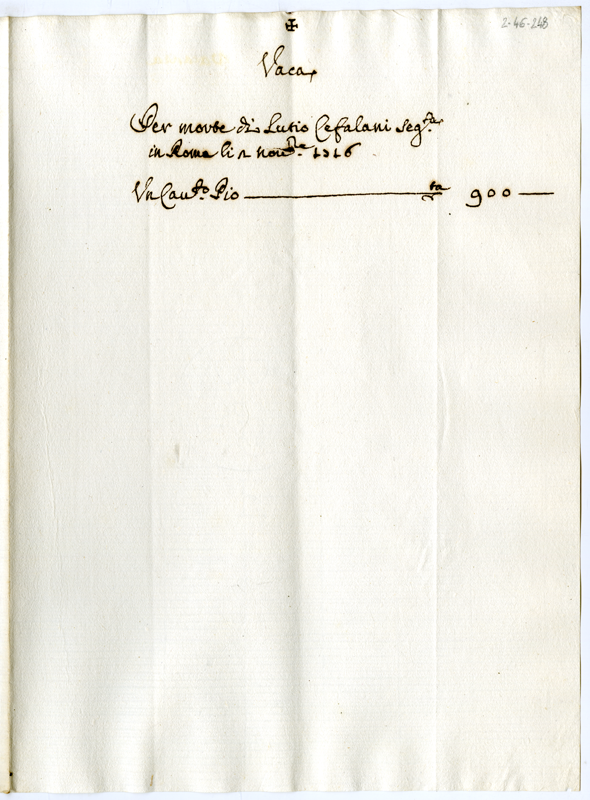 2-46-248
✠
Vaca
Per morte di Lutio Cefalani seg.ta
in Roma li 2 nou.bre
Vn Cau.to Pio ta 900